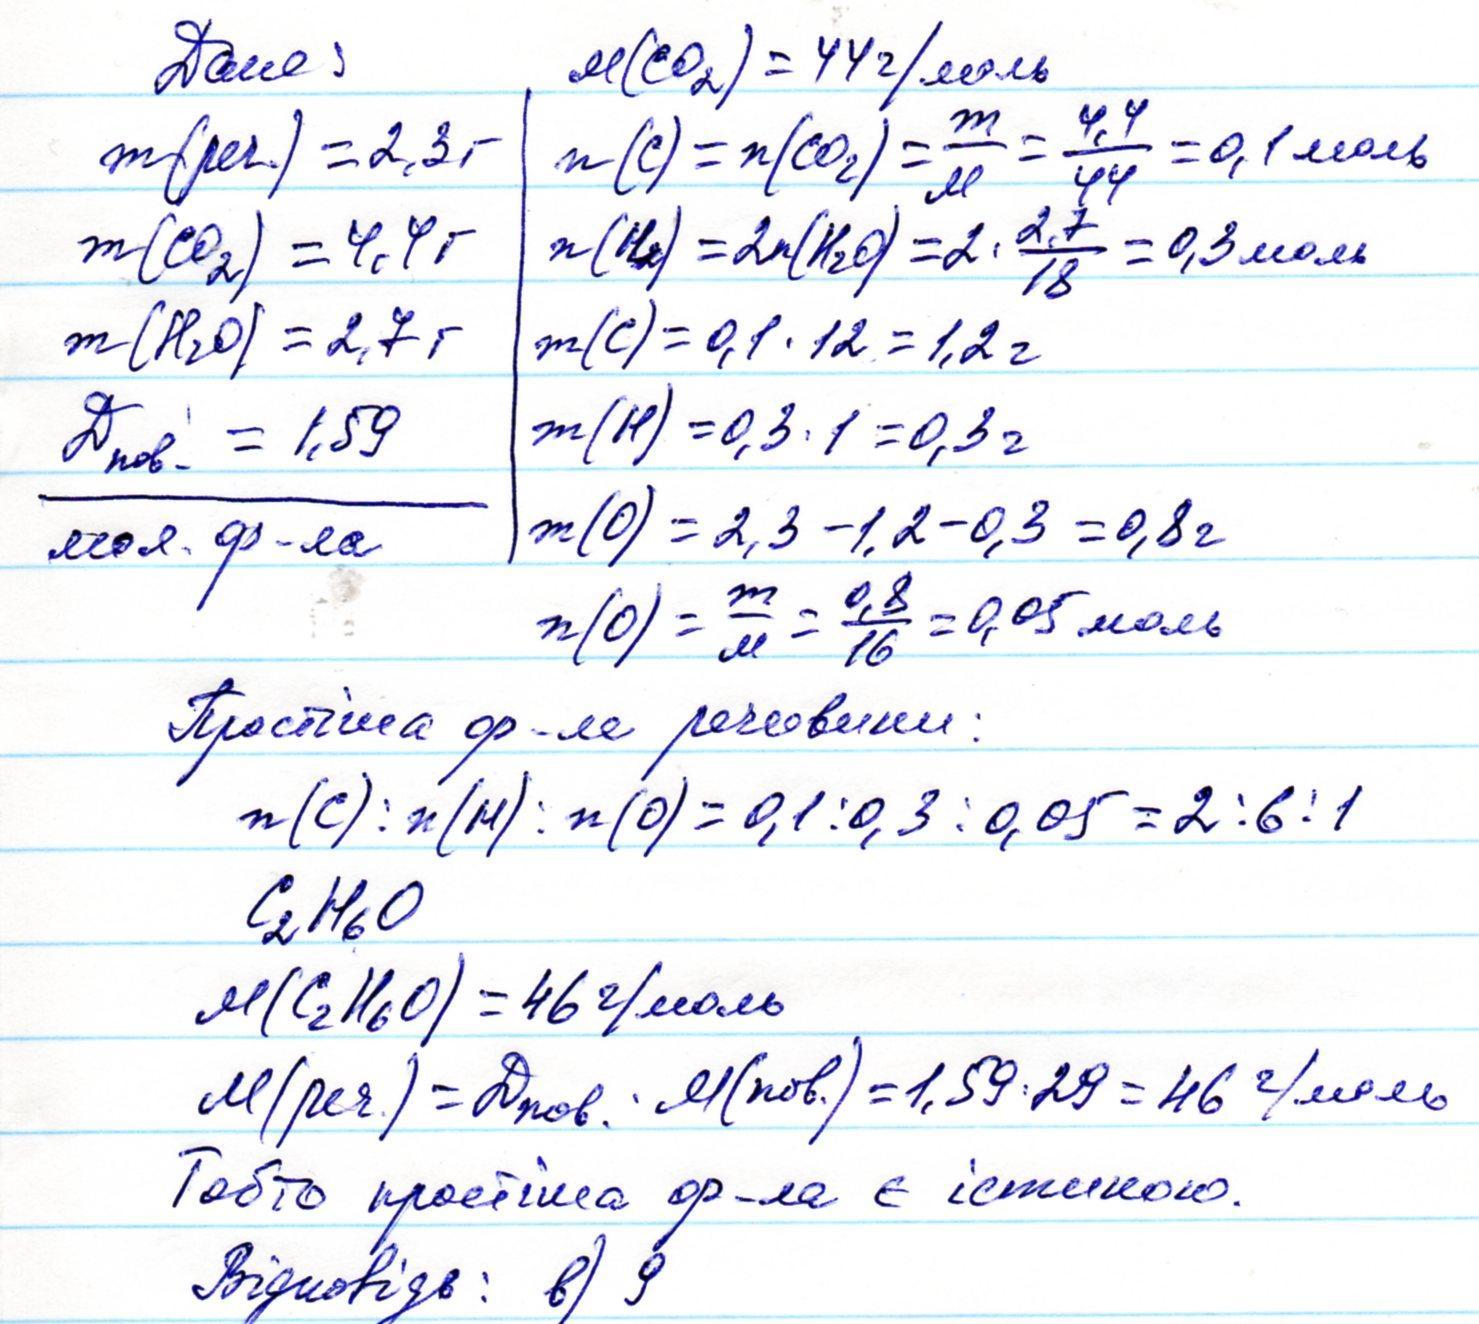 Дано:
m(реч.) = 2,3г
m(CO₂) = 4,4г
m(H₂O) = 2,7г
Dпов. = 1,59
мол. ф-ла
M(CO₂) = 44г/моль
n(C) = n(CO₂) = m/M = 4,4/44 = 0,1 моль
n(H) = 2n(H₂O) = 2 · 2,7/18 = 0,3 моль
m(C) = 0,1 · 12 = 1,2г
m(H) = 0,3 · 1 = 0,3г
m(O) = 2,3 - 1,2 - 0,3 = 0,8г
n(O) = m/M = 0,8/16 = 0,05 моль
Простіша ф-ла речовини:
n(C) : n(H) : n(O) = 0,1 : 0,3 : 0,05 = 2 : 6 : 1
C₂H₆O
M(C₂H₆O) = 46 г/моль
M(реч.) = Dпов. · M(пов.) = 1,59 · 29 = 46 г/моль
Тобто простіша ф-ла є істиною.
Відповідь: в) 9